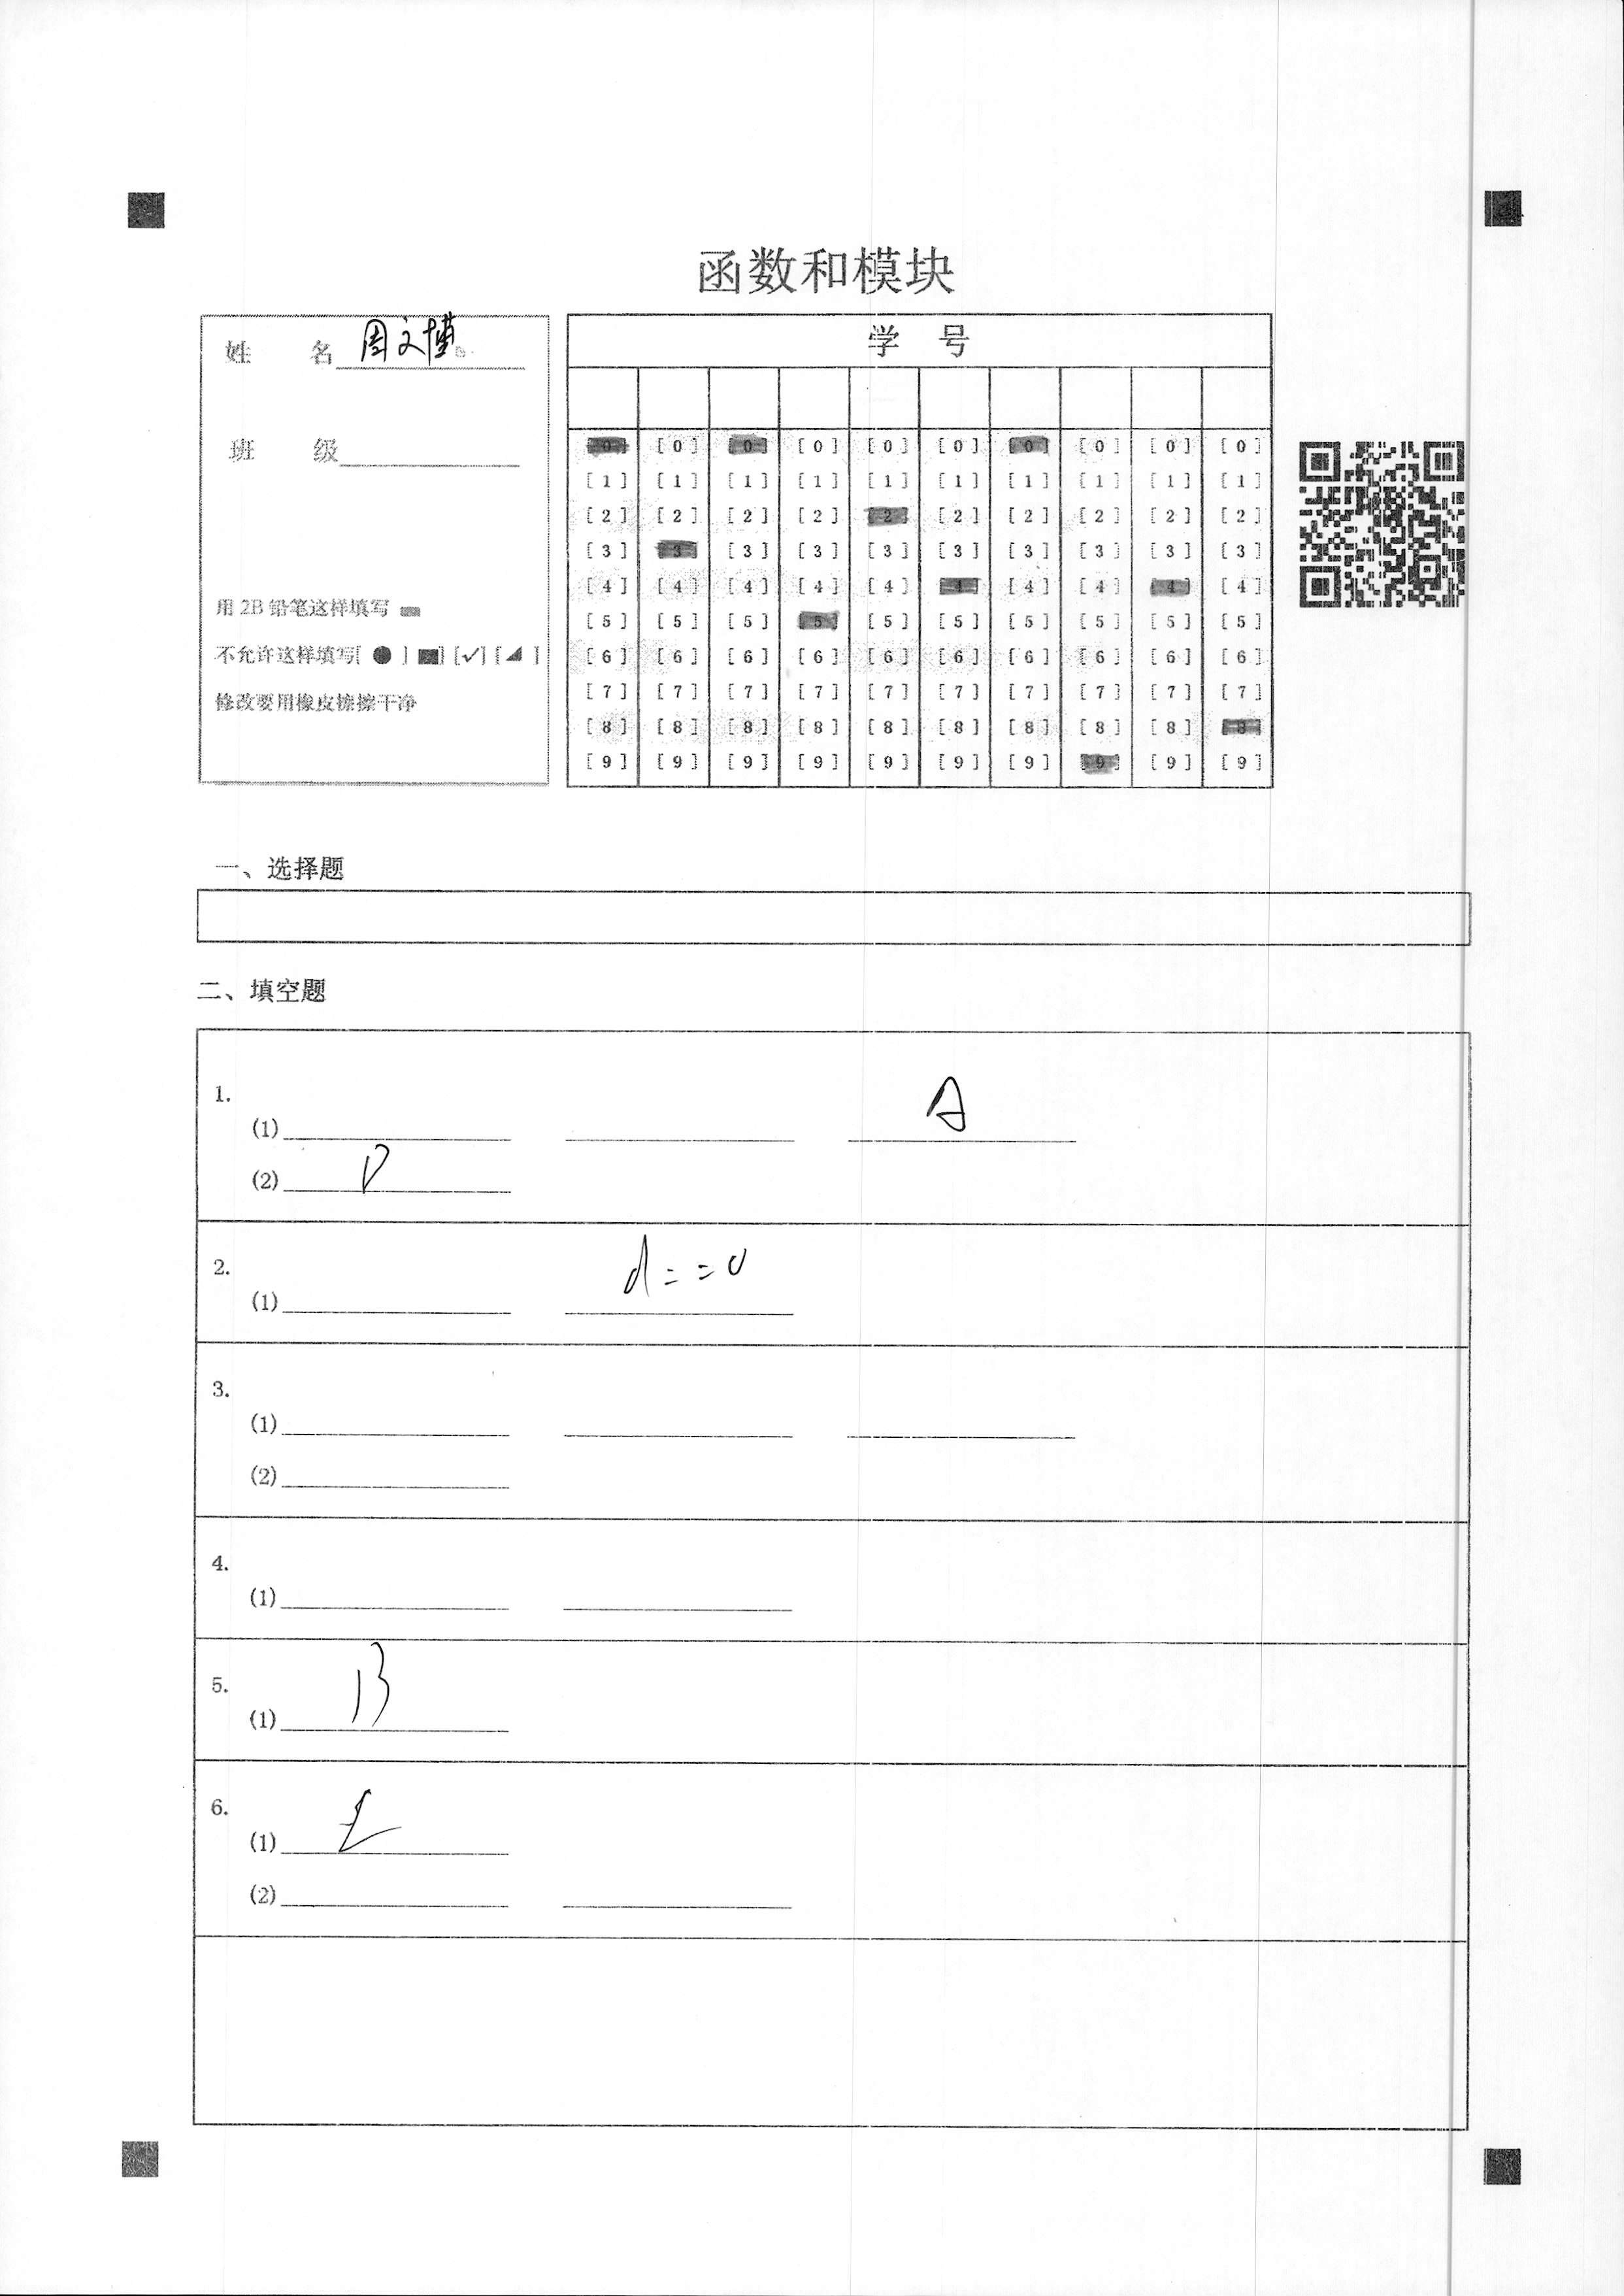 函数和模块
姓 名 周文博
班 级
用 2B 铅笔这样填写
不允许这样填写[ ● ] [■] [✓] [◢ ]
修改要用橡皮擦擦干净
学 号
[0] [0] [0] [0] [0] [0] [0] [0] [0] [0]
[1] [1] [1] [1] [1] [1] [1] [1] [1] [1]
[2] [2] [2] [2] [2] [2] [2] [2] [2] [2]
[3] [3] [3] [3] [3] [3] [3] [3] [3] [3]
[4] [4] [4] [4] [4] [4] [4] [4] [4] [4]
[5] [5] [5] [5] [5] [5] [5] [5] [5] [5]
[6] [6] [6] [6] [6] [6] [6] [6] [6] [6]
[7] [7] [7] [7] [7] [7] [7] [7] [7] [7]
[8] [8] [8] [8] [8] [8] [8] [8] [8] [8]
[9] [9] [9] [9] [9] [9] [9] [9] [9] [9]
一、选择题
二、填空题
1.
(1) A
(2)
2.
(1) d==0
3.
(1)
(2)
4.
(1)
5.
(1) B
6.
(1)
(2)